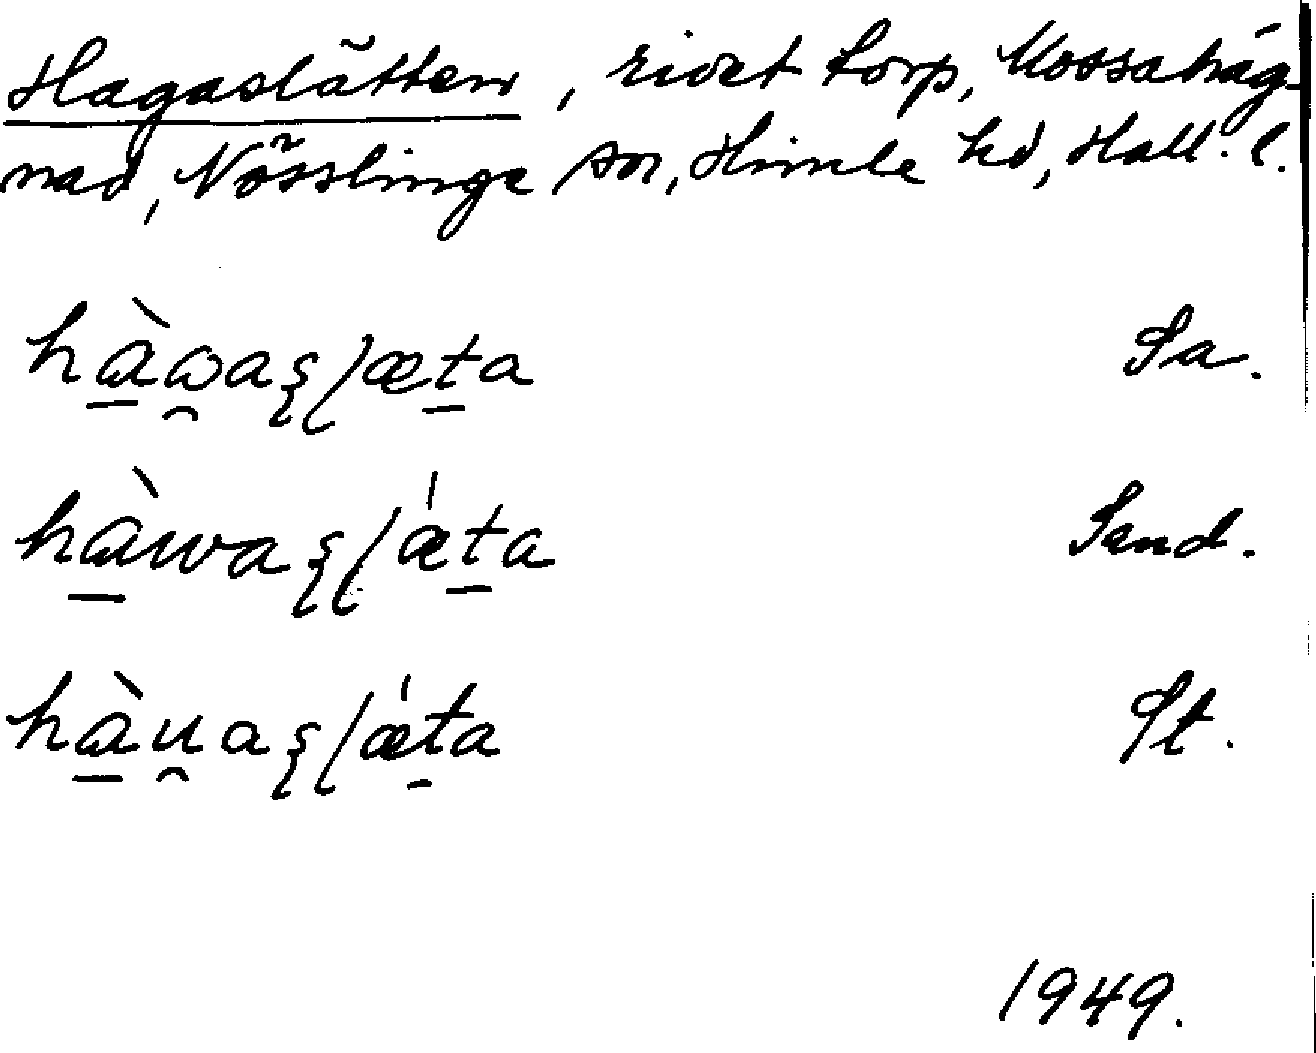 Hagaslätten, rivet torp, Mossahäg-
nad, Nösslinge sn, Himle hd, Hall. l.
hàɷas̨læta Sa.
hàwas̨lǽta Sand.
hàu̯as̨lǽta St.
1949.